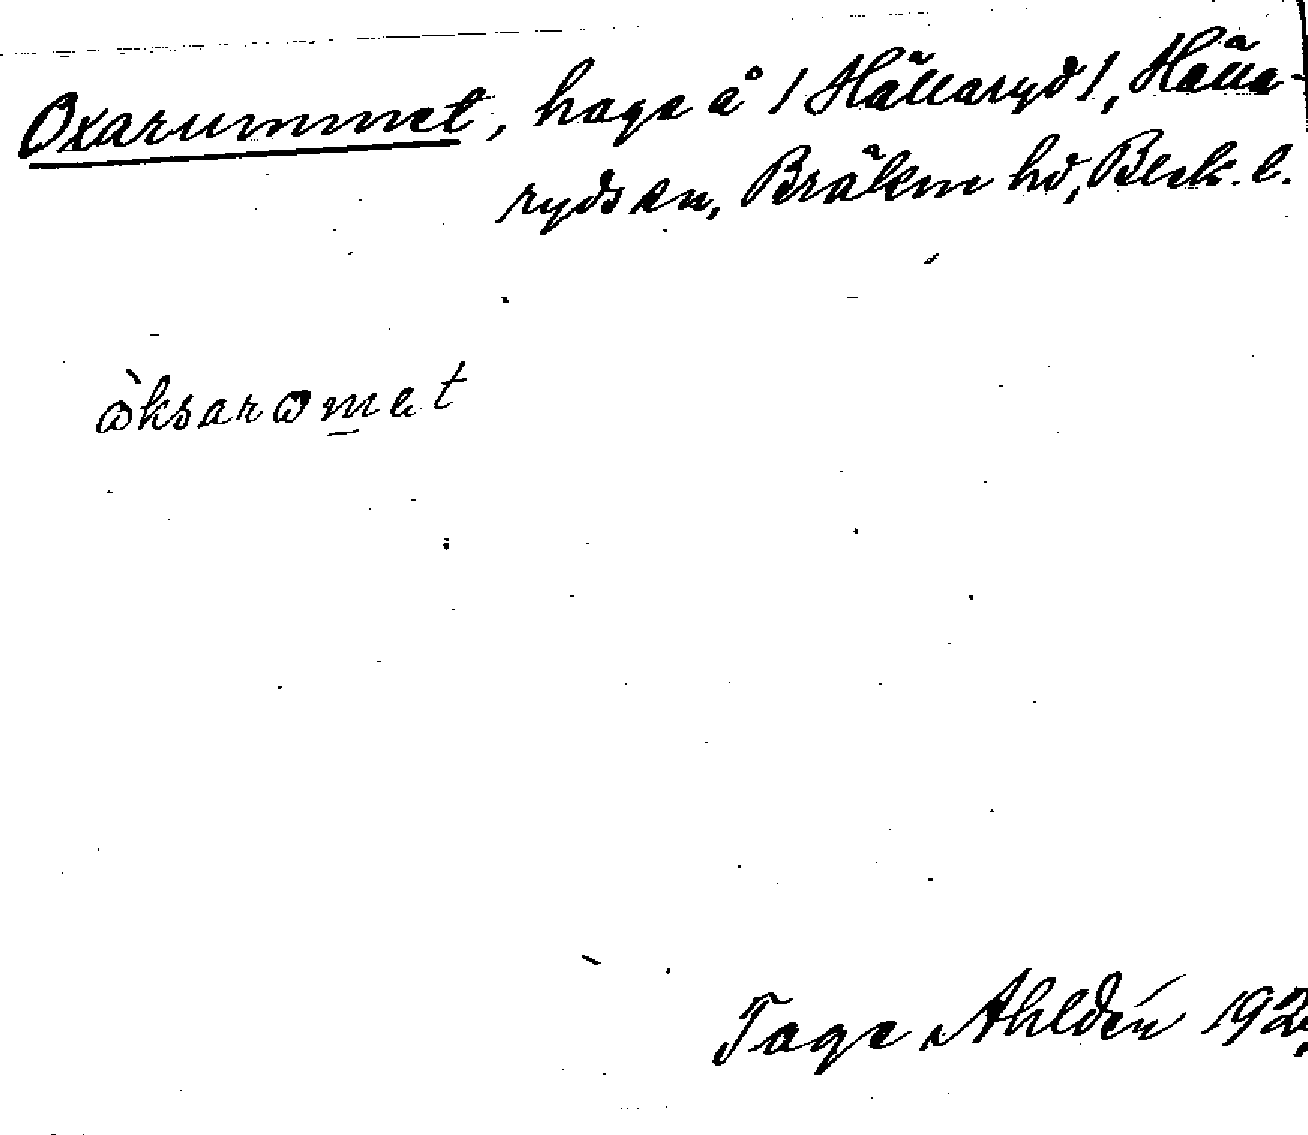 Oxarummet, hage å /Hällaryd/, Hälla-
ryds sn, Bräkne hd, Blek. l.
òksaromet
Tage Ahldén 192